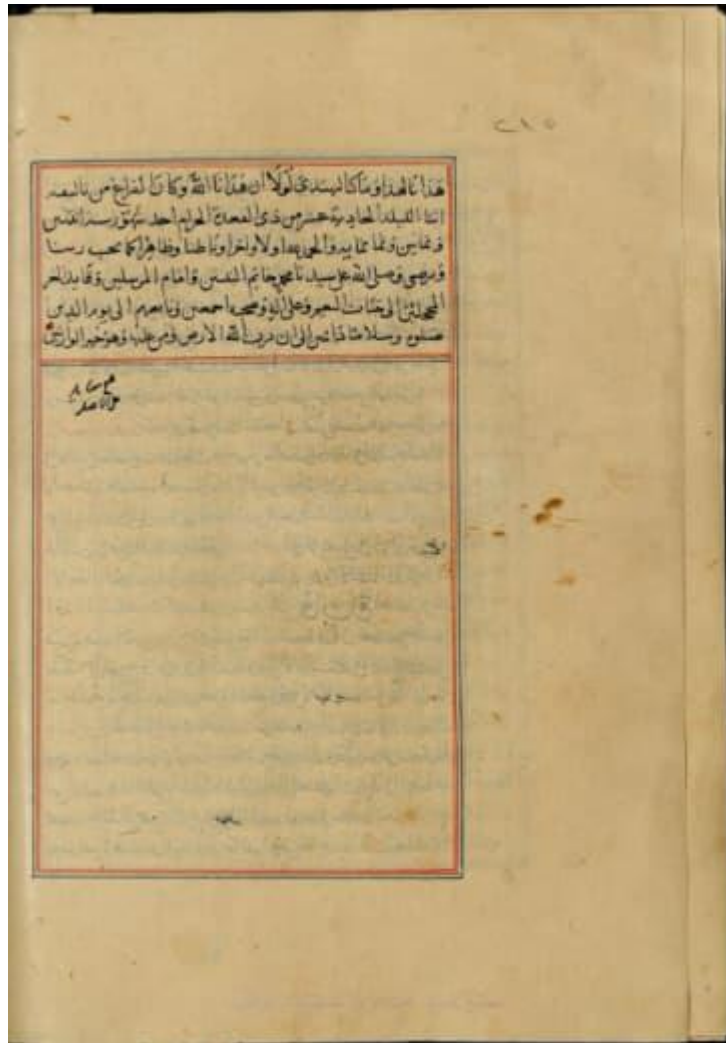 ٢١٥
هدانا لهذا وما كنا لنهتدي لولا ان هدانا الله وكان الفراغ من تاليفه
الليلة الحادية عشر من ذي القعدة الحرام احد شهور سنة اثنين
وثمانين وثمانمايه والحمد لله اولا واخرا وباطنا وظاهرا كما يحب ربنا
ويرضى وصلى الله على سيدنا محمد خاتم النبيين وامام المرسلين وقايد الغر
المحجلين الى جنات النعيم وعلى اله وصحبه اجمعين وتابعيهم الى يوم الدين
صلوة وسلاما دائمين الى ان يرث الله الارض ومن عليها وهو خير الوارثين